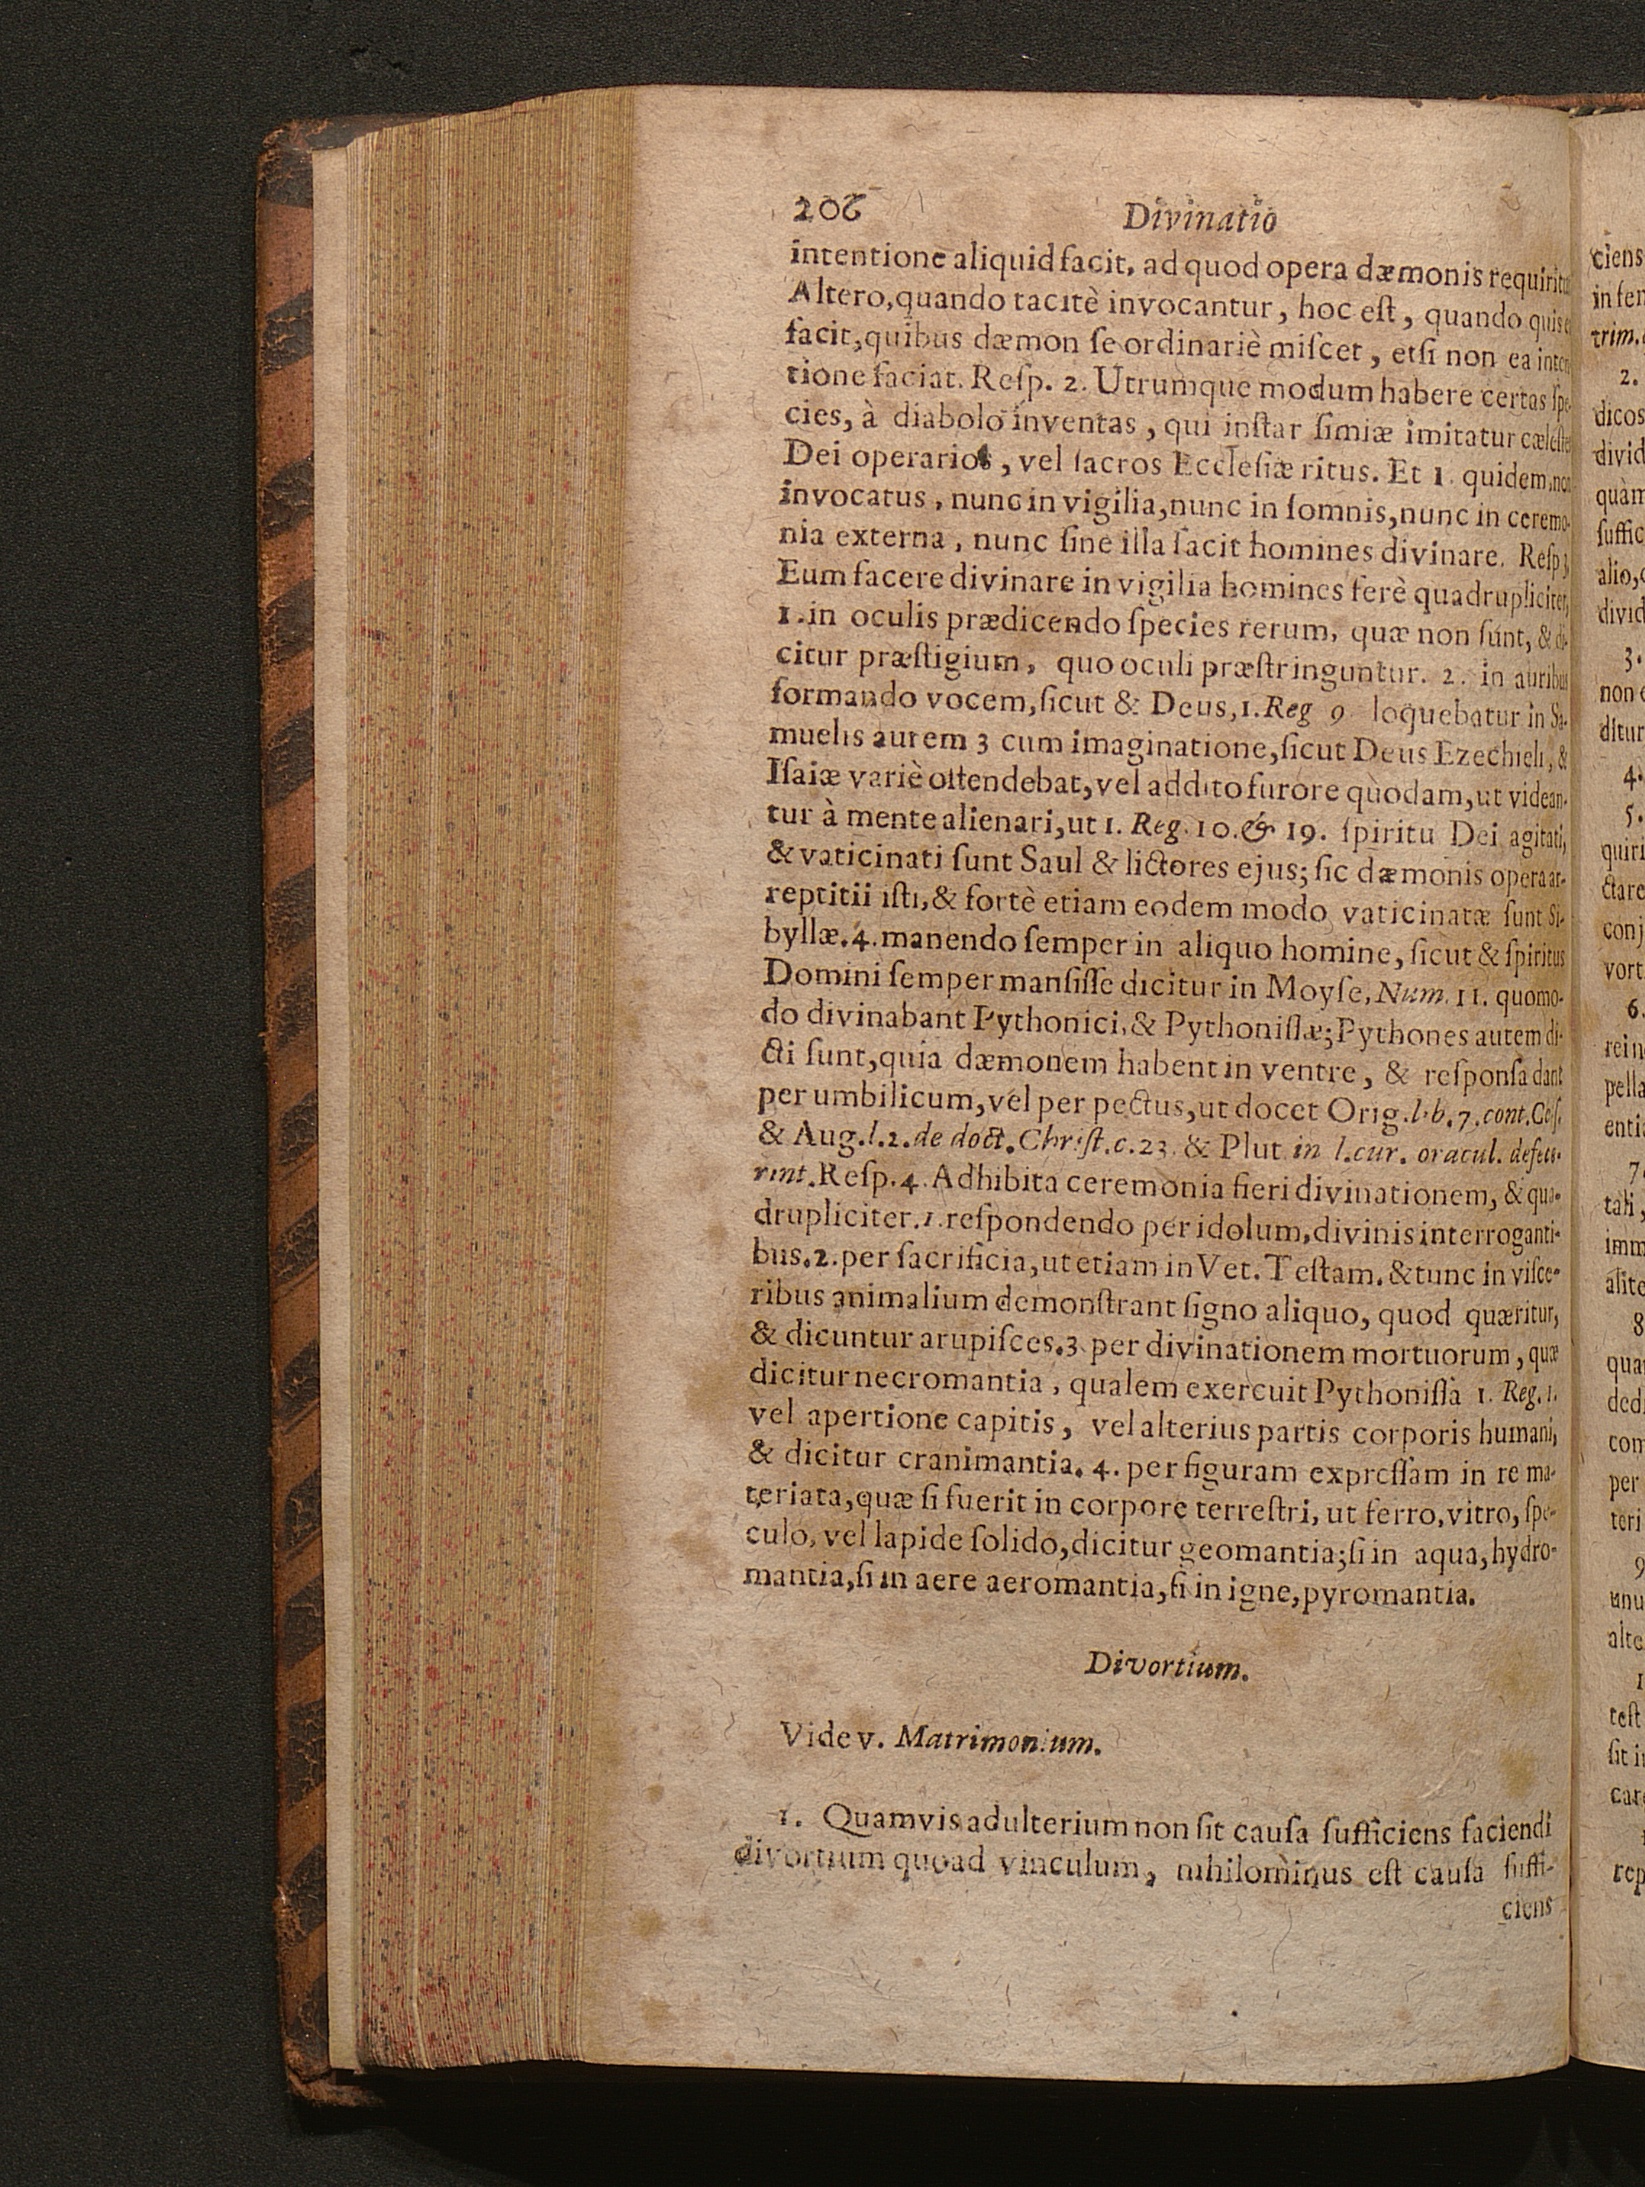 206
Divinatio
intentione aliquid facit, ad quod opera dæmonis requiritu
Altero, quando tacitè invocantur, hoc eſt, quando quis e
facit, quibus dæmon ſe ordinariè miſcet, etſi non ea inten
tione faciat. Reſp. 2. Utrumque modum habere certas ſpe-
cies, à diabolo inventas, qui inſtar ſimiæ imitatur cæleſte
Dei operarios, vel ſacros Eccleſiæ ritus. Et 1. quidem, non
invocatus, nunc in vigilia, nunc in ſomnis, nunc in ceremo-
nia externa, nunc ſine illa facit homines divinare. Reſp 3,
Eum facere divinare in vigilia homines ferè quadrupliciter,
1. in oculis prædicendo ſpecies rerum, quæ non ſunt, & di-
citur præſtigium, quo oculi præſtringuntur. 2. in auribus
formando vocem, ſicut & Deus, 1. Reg 9 loquebatur in Sa-
muelis aurem 3 cum imaginatione, ſicut Deus Ezechieli, &
Iſaiæ variè oſtendebat, vel addito furore quòdam, ut videan-
tur à mente alienari, ut 1. Reg. 10. & 19. ſpiritu Dei agitati,
& vaticinati ſunt Saul & lictores ejus; ſic dæmonis opera ar-
reptitii iſti, & fortè etiam eodem modo vaticinatæ ſunt Si-
byllæ. 4. manendo ſemper in aliquo homine, ſicut & ſpiritus
Domini ſemper manſiſſe dicitur in Moyſe, Num. 11. quomo-
do divinabant Pythonici, & Pythoniſſæ; Pythones autem di-
cti ſunt, quia dæmonem habent in ventre, & reſponſa dant
per umbilicum, vel per pectus, ut docet Orig. lib. 7. cont. Celſ.
& Aug. l. 2. de doct. Chriſt. c. 23. & Plut in l. cur. oracul. defeu-
rint. Reſp. 4. Adhibita ceremonia fieri divinationem, & qua-
drupliciter. 1. reſpondendo per idolum, divinis interroganti-
bus. 2. per ſacrificia, ut etiam in Vet. Teſtam. & tunc in viſce-
ribus animalium demonſtrant ſigno aliquo, quod quæritur,
& dicuntur arupiſces. 3 per divinationem mortuorum, quæ
dicitur necromantia, qualem exercuit Pythoniſſà 1. Reg. 1.
vel apertione capitis, vel alterius partis corporis humani,
& dicitur cranimantia. 4. per figuram expreſſam in re ma-
teriata, quæ ſi fuerit in corpore terreſtri, ut ferro, vitro, ſpe-
culo, vel lapide ſolido, dicitur geomantia; ſi in aqua, hydro-
mantia, ſi in aere aeromantia, ſi in igne, pyromantia.
Divortium.
Vide v. Matrimonium.
1. Quamvis adulterium non ſit cauſa ſufficiens faciendi
divortium quoad vinculum, nihilominus eſt cauſa ſuffi-
ciens